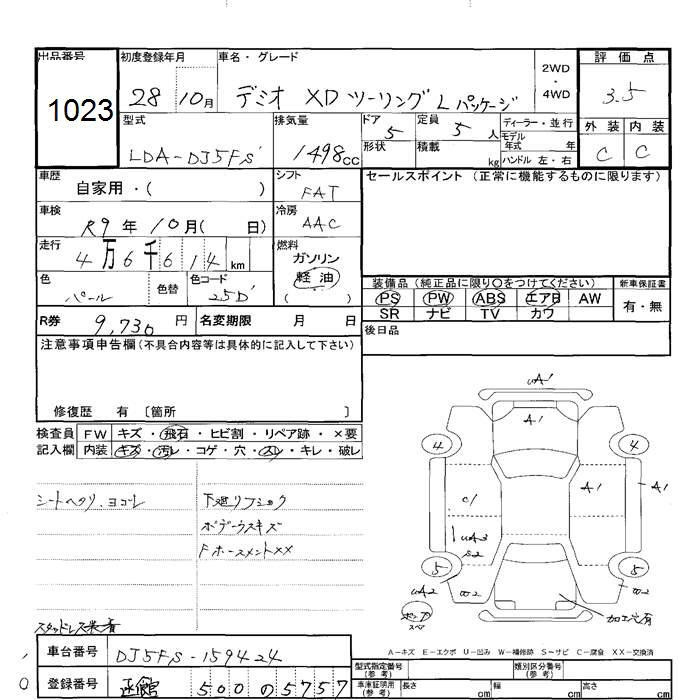 出品番号 初度登録年月 車名・グレード 2WD・4WD 評価点
1023 28 10月 デミオ XD ツーリング L パッケージ 3.5
型式 排気量 ドア 5 定員 5人 ディーラー・並行 外装 内装
LDA-DJ5FS 1498cc 形状 積載 kg モデル年式 年 ハンドル 左・右 C C
車歴 自家用・( ) シフト FAT セールスポイント (正常に機能するものに限ります)
車検 R9年10月( 日) 冷房 AAC
走行 4万6千614km 燃料 ガソリン 軽油 ( )
色 パール 色替 色コード 25D 装備品 (純正品に限り○をつけてください) 新車保証書
PS PW ABS エアB AW 有・無
SR ナビ TV カワ
R券 9,730円 名変期限 月 日 後日品
注意事項申告欄 (不具合内容等は具体的に記入して下さい)
修復歴 有 〔箇所 〕
検査員 FW キズ・飛石・ヒビ割・リペア跡・×要
記入欄 内装 キズ・汚レ・コゲ・穴・スレ・キレ・破レ
シートヘタリ、ヨゴレ 下廻りフショク
ボデーウスキズ
Fホースメント××
uA1
A1
4 4
A1 A1
C1
uA3
S2
5 5
uA2
ポンプ
スペア
加工穴有
A-キズ E-エクボ U-凹み W-補修跡 S-サビ C-腐食 XX-交換済
スタッドレス装着
車台番号 DJ5FS-159424 型式指定番号 (参考) 類別区分番号 (参考)
登録番号 函館 500 の 5757 車庫証明用 (参考) 長さ cm 幅 cm 高さ cm